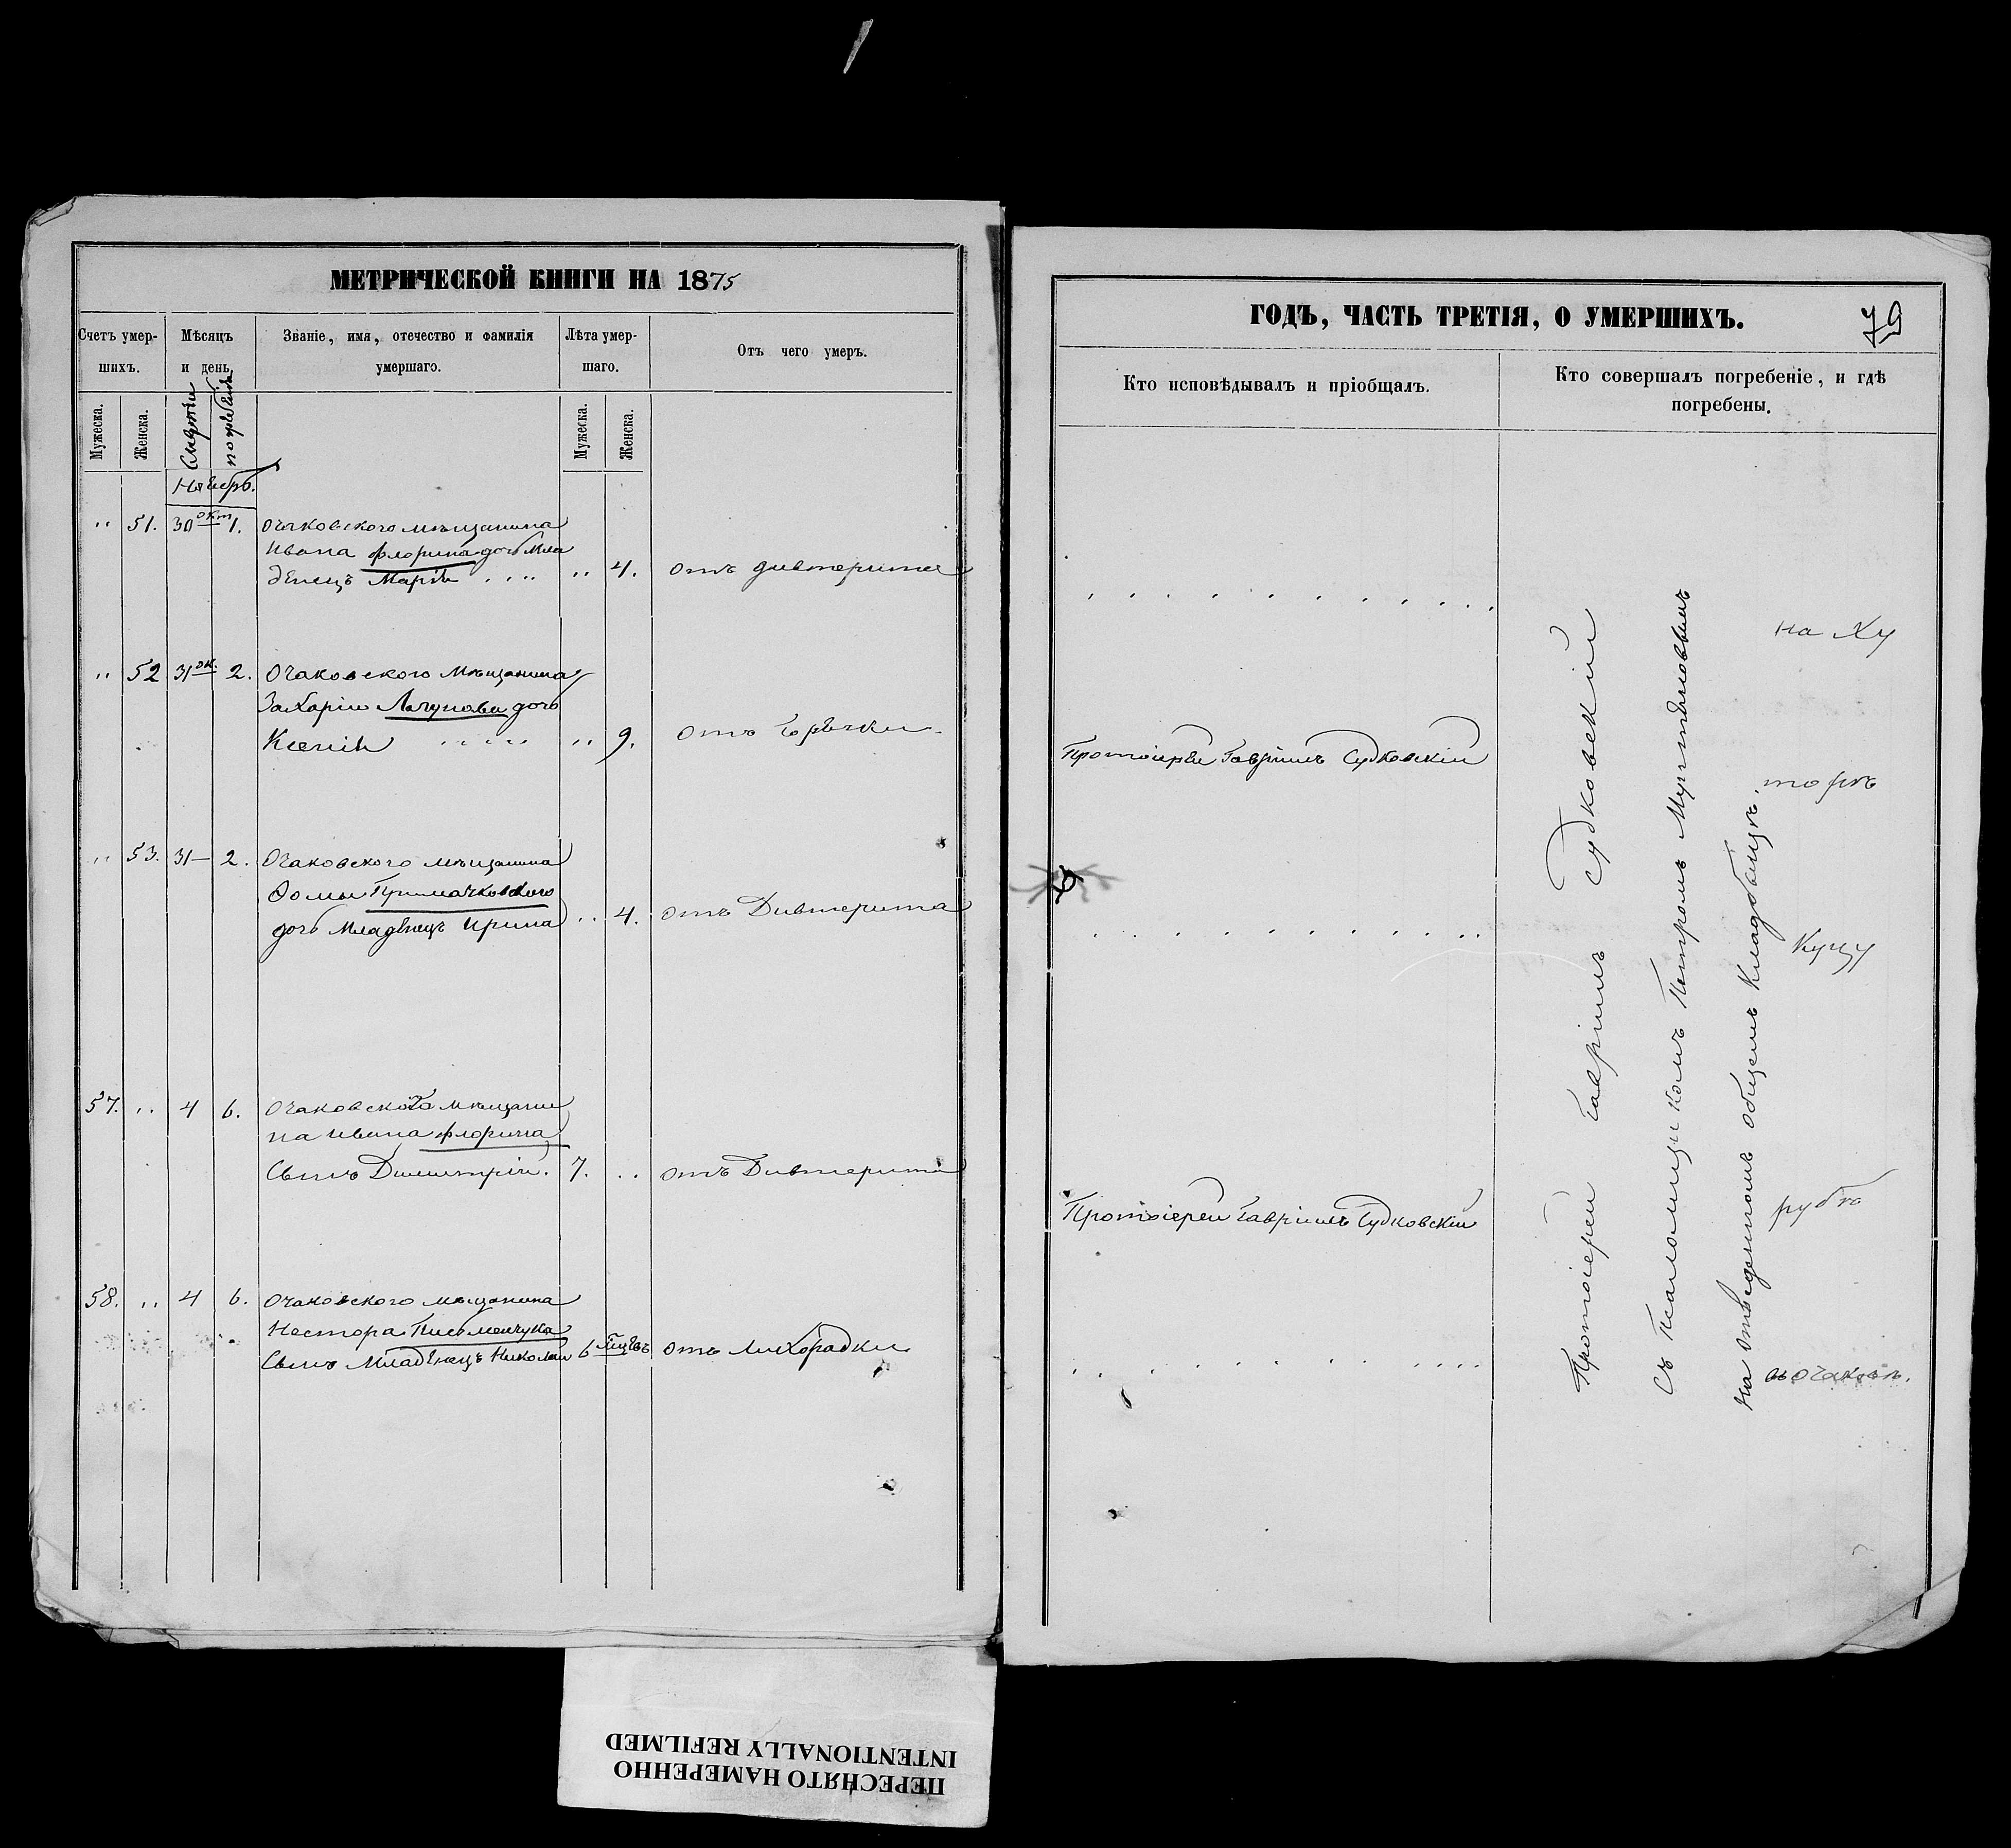 МЕТРИЧЕСКОЙ КНИГИ НА 1875
Счетъ умер-
шихъ.
Мѣсяцъ
и день
Званіе, имя, отечество и фамилія
умершаго.
Лѣта умер-
шаго.
Отъ чего умеръ.
Мужеска.
Женска.
Смерти
погребенія
Мужеска.
Женска.
Ноябрь.
" 51. 30 окт 1. Очаковского мѣщанина
Ивана Флорина дочь мла
денецъ Марія .... " 4. отъ дивтерита
" 52 31 ок. 2. Очаковского мѣщанина
Захарія Лагунова дочь
Ксенія " 9. отъ горячки
" 53. 31 — 2. Очаковского мѣщанина
Ѳомы Примачковского
дочь младенецъ Ирина " 4. отъ Дивтерита
57. " 4 6. Очаковского мѣщани
на Ивана Флорина
сынъ Димитрій. 7. " отъ Дивтерита
58. " 4 6. Очаковского мѣщанина
Нестора Письменчука
сынъ младенецъ Николай 6 мцевъ отъ лихорадки
ГОДЪ, ЧАСТЬ ТРЕТІЯ, О УМЕРШИХЪ.
79
Кто исповѣдывалъ и пріобщалъ.
Кто совершалъ погребеніе, и гдѣ
погребены.
Протоіерей Гавріилъ Судковскій
Протоіерей Гавріилъ Судковскій
Протоіерей Гавріилъ Судковскій
съ Псаломщикомъ Петромъ
на отведенномъ общемъ кладбищѣ.
на Ху
торѣ
Куцу
рубѣ
въ Очаковѣ.
ПЕРЕСНЯТО НАМЕРЕННО
INTENTIONALLY REFILMED